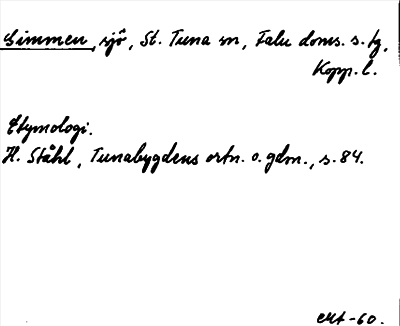 Gimmen, sjö, St. Tuna sn, Falu doms. s. tg,
Kopp. l.
Etymologi.
H. Ståhl, Tunabygdens ortn. o. gdn., s. 84.
-60.